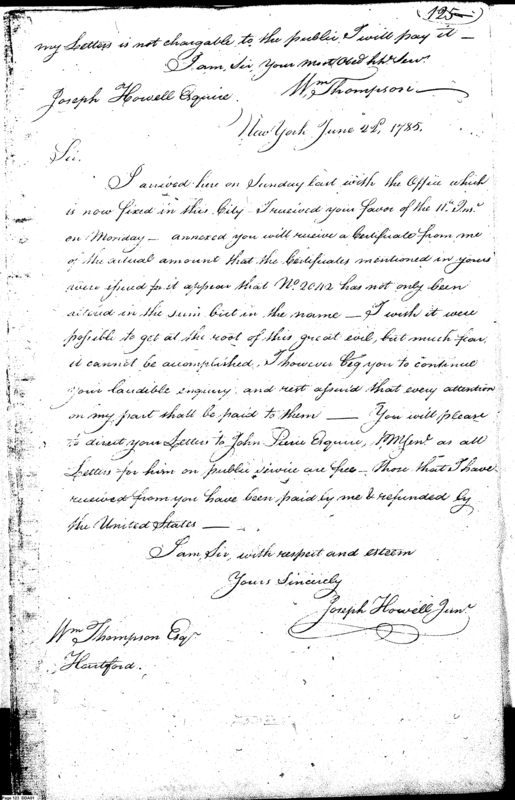 (125)
my Letters is not chargable to the public I will pay it —
I am, Sir, Your most Obed. hb. Serv.
Wm Thompson
Joseph Howell Esquire.
New York June 22d. 1785.
Sir.
I arrived here on Sunday last with the Office which
is now fixed in this City — I received your favor of the 11th. Inst.
on Monday — annexed you will receive a Certificate from me
of the actual amount that the Certificates mentioned in yours
were issued for it appear that No. 2042 has not only been
altered in the sum but in the name — I wish it were
possible to get at the root of this great evil, but much fear
it cannot be accomplished, I however beg you to continue
your laudible enquiry and rest assurd that every attention
on my part shall be paid to them — You will please
to direct your Letters to John Pierce Esquire, PMGenl. as all
Letters for him on public service are free — Those that I have
received from you have been paid by me & refunded by
the United States —
I am, Sir, with respect and esteem
Yours Sincerely
Joseph Howell Junr.
Wm Thompson Esqr.
Hartford.